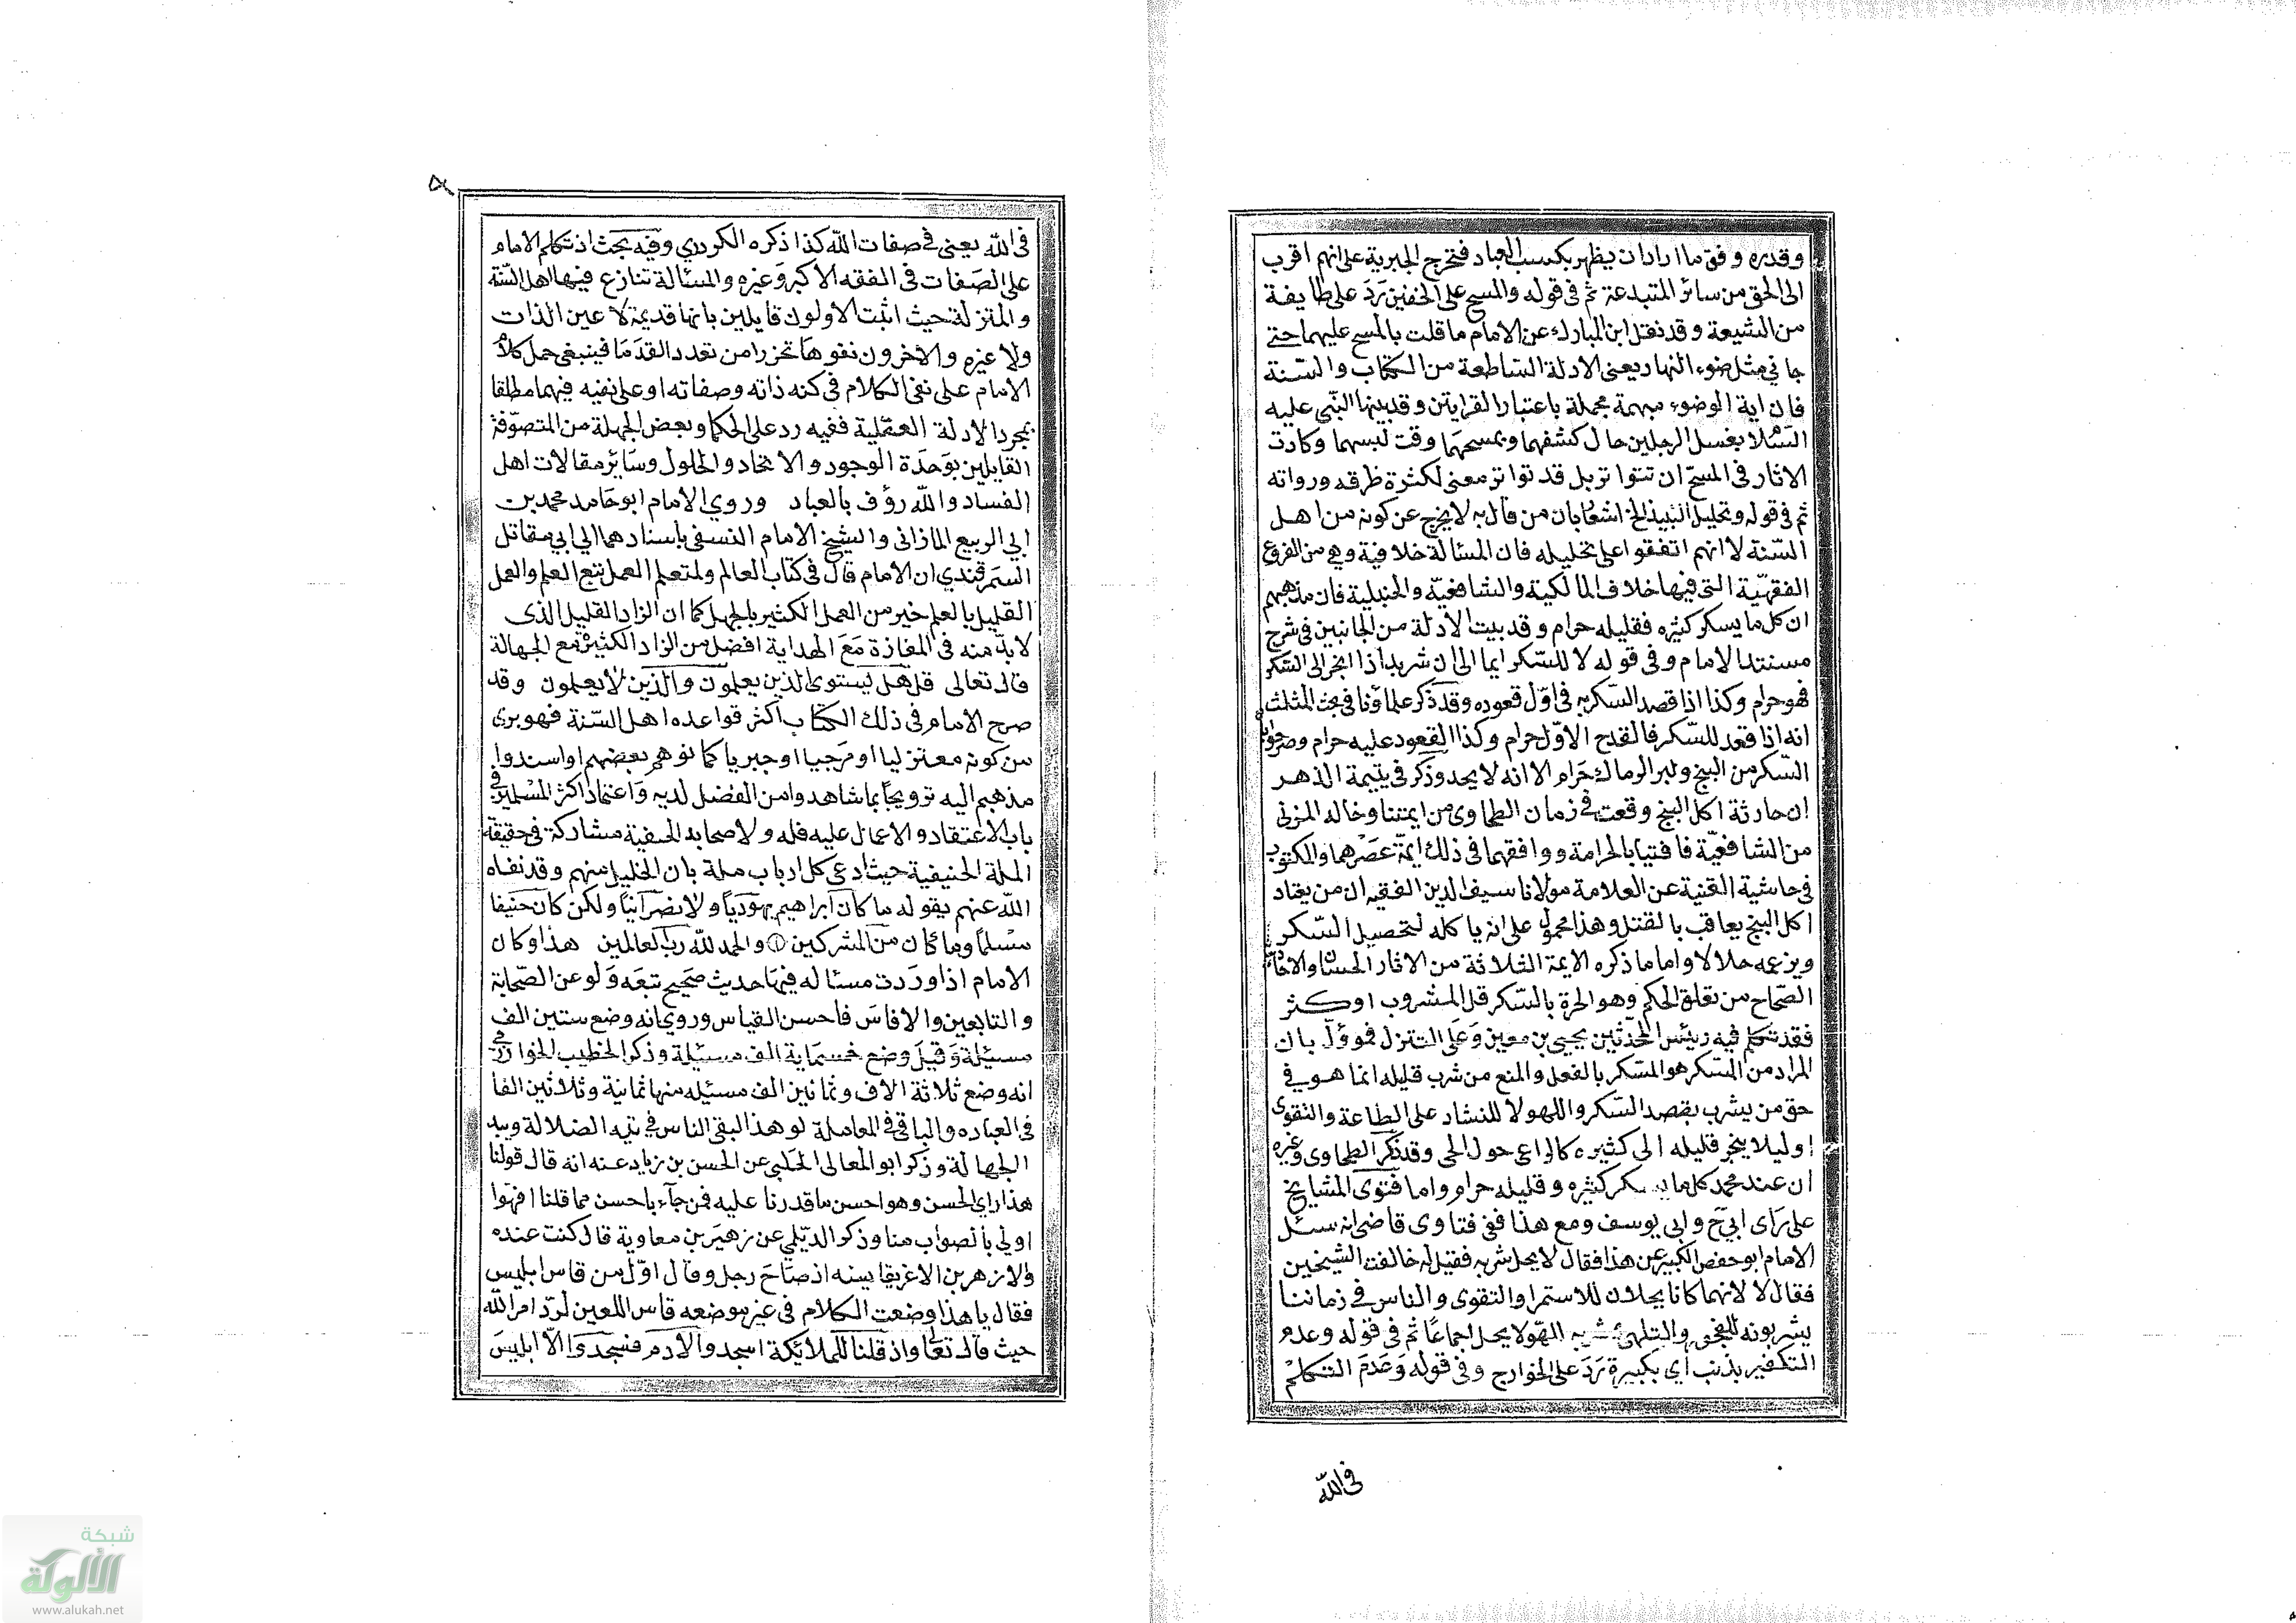 وقدره وفق ما اراد ان يظهر بكسب العباد فتخرج الجبرية على انهم اقرب
الى الحق من سائر المتبدعة ثم فى قوله والمسح على الخفين رَدَ على طايفة
من الشيعة وقد نقل ابن المبارك عن الامام ما قلت بالمسح عليهما حتى
جا فى مثل ضوء النهار يعنى الادلة الساطعة من الكتاب والسّنة
فان اية الوضوء مبهمة مجملة باعتبار القرايتن وقد بينها النّبى عليه
السّلا بغسل الرجلين حال كشفهما وبمسحهما وقت لبسهما وكادت
الاثار فى المسح ان تتواتر بل قد تواتر معنى لكثرة طرقه ورواته
ثم فى قوله وتحليل النبيذ الخ اشعار بان من قال به لا يخرج عن كونه من اهل
السّنة لا انهم اتفقوا على تحليله فان المسألة خلافية وهى من الفروع
الفقهيّة التى فيها خلاف المالكية والشافعيّة والحنبلية فان مذهبهم
ان كل ما يسكر كثيره فقليله حرام وقد بينت الادلة من الجانبين فى شرح
مسند الامام وفى قوله لا للسّكر ايما الى ان شربه اذا انجر الى السّكر
فهو حرام وكذا اذا قصد السّكر به فى اوّل قعوده وقد ذكر علماؤنا فى بحث المثلث
انه اذا قعد للسّكر فالقدح الاوّل حرام وكذا القعود عليه حرام وصرحوا بان
السّكر من البنج ولبن الرماك حَرام الا انه لا يحد وذكر فى يتيمة الدهر
ان حادثة اكل البنج وقعت فى زمان الطحاوى من ايمتنا وخاله المزنى
من الشافعيّة فافتيا بالحرامة ووافقهما فى ذلك ايمّة عصْرهما والمكتوب
فى حاشية القنية عن العلامة مولانا سيف الدين الفقيه ان من يعتاد
اكل البنج يعاقب بالقتل وهذا محمول على انه ياكله لتحصيل السّكر
ويزعمه حلالا واما ما ذكره الايمة الثلاثة من الاثار الحسان والاخبار
الصّحاح من تعلق الحكم وهو الحرمة بالسّكر قل المشروب او كثر
فقد تكلم فيه رئيس المحدّثين يحيى بن معين وَعَلَى التنزل فمؤوّل بان
المراد من المسكر هو المسكر بالفعل والمنع من شرب قليله انما هو فى
حق من يشرب بقصد السّكر واللهو لا للنشاد على الطاعة والتقوى
او ليلا ينجر قليله الى كثيره كالراعى حول الحمى وقد ذكر الطحاوى وغيره
ان عند محمد كل ما يسكر كثيره وقليله حرام واما فتوى المشايخ
على رَاى ابى ح وابى يوسف ومع هذا ففى فتاوى قاضى انه سئل
الامام ابو حفص الكبير عن هذا فقال لا يحل شربه فقيل له خالفت الشيخين
فقال لا لانهما كانا يحلان للاستمرا والتقوى والناس فى زماننا
يشربونه للفجور والتلهى شربه اللهو لا يحل اجماعًا ثم فى قوله وعدم
التكفير بذنب اى بكبيرة رَدَ على الخوارج وفى قوله وَعَدمَ التكلم
فى اللّه
فى اللّه يعنى فى صفات اللّه كذا ذكره الكردرى وفيه بحث اذ تكلم الامام
على الصّفات فى الفقه الاكبر وَغيره والمسألة تنازع فيها اهل السّنّة
والمتزلة حيث اثبت الاولون قايلين بانها قديمة لا عين الذات
ولا غيره والاخرون نفوهَا تحزرا من تعدد القدَمَا فينبغى حمل كلام
الامام على نفى الكلام فى كنه ذاته وصفاته او على نفيه فيهما مطلقا
بمجرد الادلة العقلية ففيه رد على الحكما وبعض الجهلة من المتصوّفة
القايلين بوَحدَة الوجود والاتحاد والحلول وسَائر مقالات اهل
الفساد واللّه رؤف بالعباد وروى الامام ابو حَامد محمد بن
ابى الربيع المازانى والشيخ الامام النسفى باسنادهما الى ابى مقاتل
السّمرقندى ان الامام قال فى كتاب العالم والمتعلم العمل تبع العلم والعمل
القليل بالعلم خير من العمل الكثير بالجهل كما ان الزاد القليل الذى
لابدّ منه فى المفازة مَعَ الهداية افضل من الزاد الكثير مع الجهالة
قال تعالى قل هل يستوى الذين يعلمون والذين لا يعلمون وقد
صرح الامام فى ذلك الكتاب اكثر قواعده اهل السّنة فهو برى
من كونه معتزليا او مرَجيا او جبريا كما توهم بعضهم او اسندوا
مذهبهم اليه ترويجًا بما شاهدوا من الفضل لديه وَاعتماد اكثر المسْلمين فى
باب الاعتقاد والاعمال عليه فله ولاصحابه الحنفية مشاركة فى حقيقة
الملة الحنيفية حيث ادعى كل ارباب ملة بان الخليل منهم وقد نفاه
اللّه عنهم بقوله ما كان ابراهيم يهوديّاً ولا نصرانيّاً ولكن كان حَنيفا
مسْلماً وما كان من المشركين والحمد للّه رب العالمين هذا وكان
الامام اذا وردت مسئاله فيها حَديث صَحيح تبعَه وَلو عن الصّحابة
والتابعين والا قاسَ فاحسن القياس وروى انه وضع ستين الف
مسئيلة وَقيل وضع خمسماية الف مسئيلة وذكر الخطيب الخوارزمى
انه وضع ثلاثة الاف وثمانين الف مسئيله منها ثمانية وثلاثين الفا
فى العباده والباقى فى المعاملة لو هذا لبقى الناس فى تيه الضلالة وبيد
الجهالة وذكر ابو المعالى الحَلبى عن الحسن بن زياد عنه انه قال قولنا
هذا راى الحسن وهو احسن ما قدرنا عليه فمن جآء باحسن مما قلنا فهوا
اولى بالصواب منا وذكر الديّلمى عن زهيَر بن معاوية قال كنت عنده
والازهر بن الاغر يقايسنه اذ صَاحَ رجل وقال اوّل من قاس ابليس
فقال يا هذا وضعت الكلام فى غير موضعه قاس اللعين لردّ امر اللّه
حيث قال تعالى واذ قلنا للملائكة اسجدوا لادم فسَجدوا الّا ابليسَ
شبكة
الألوكة
www.alukah.net